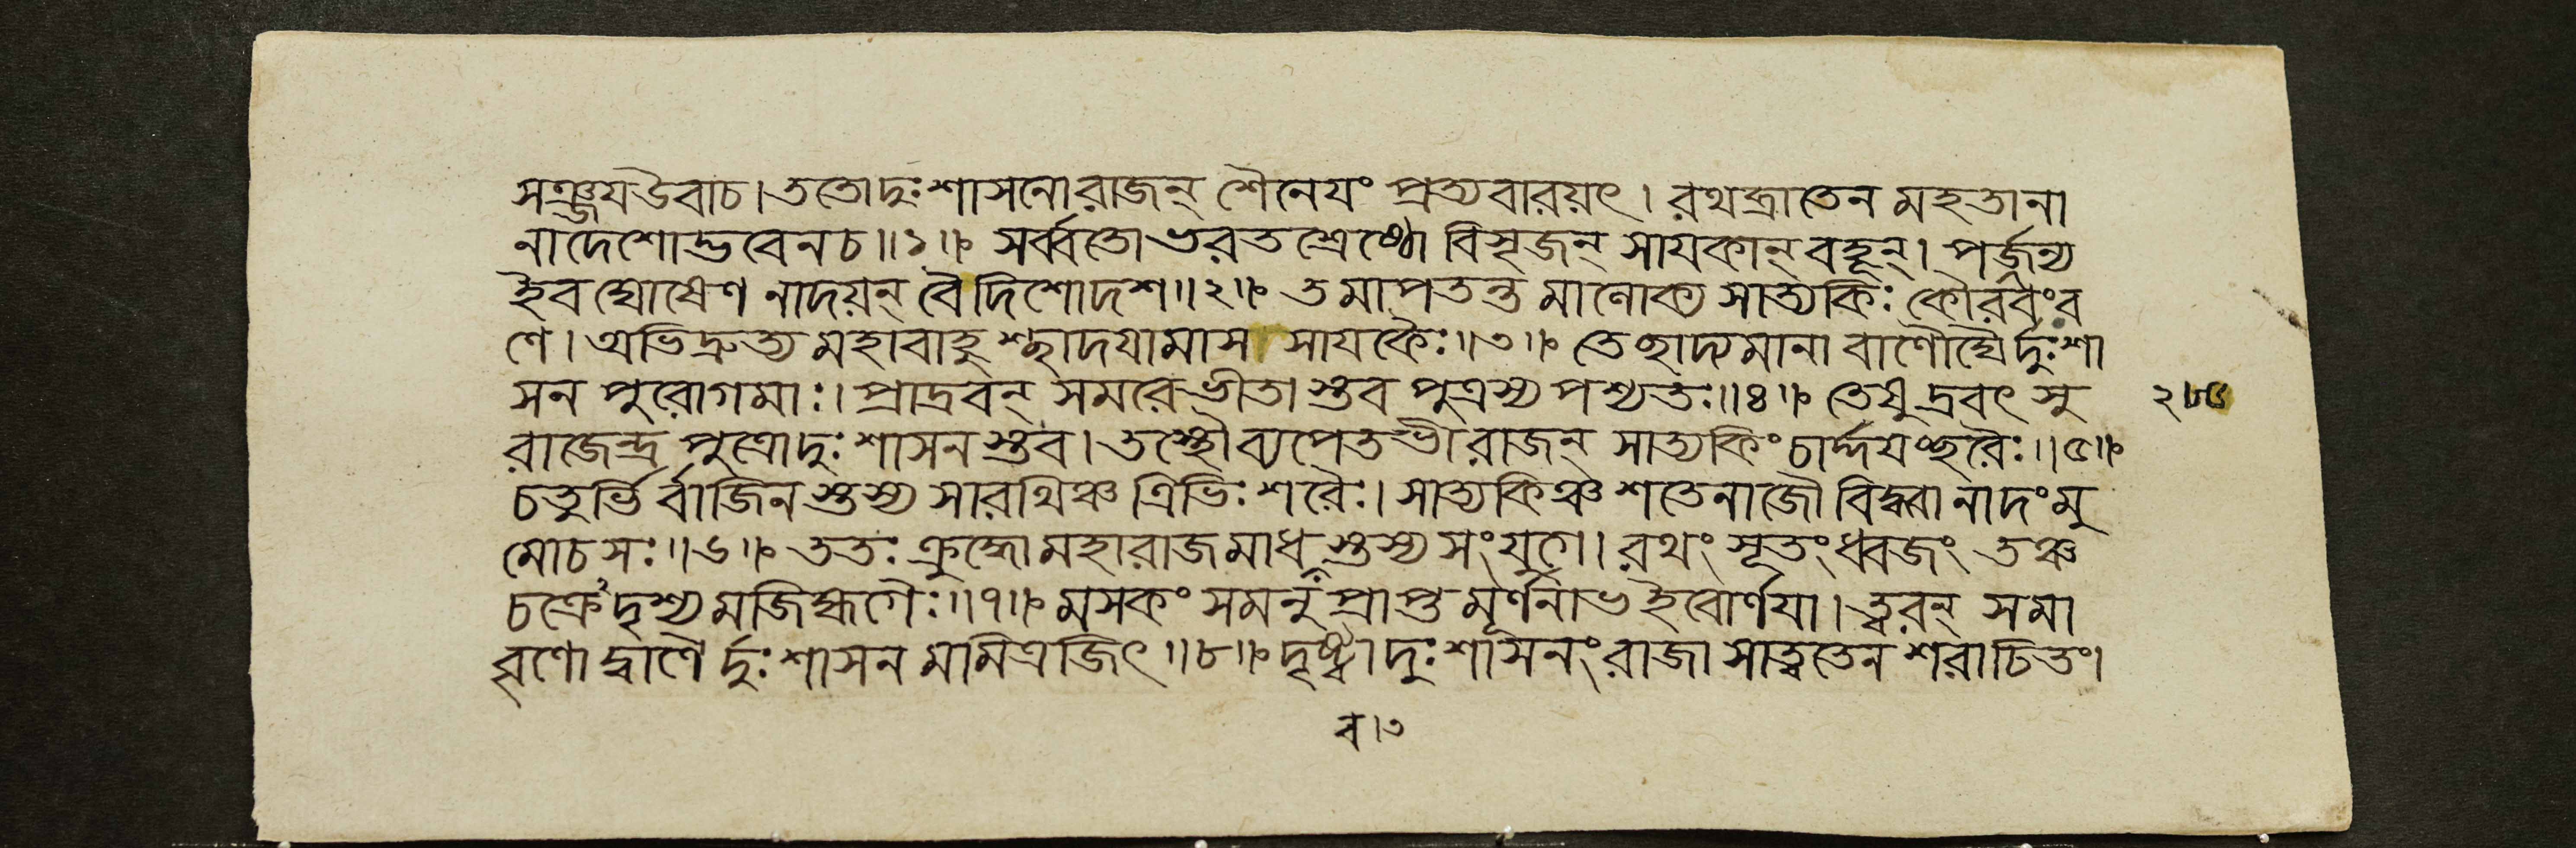 সঞ্জয়উবাচ। ততোদুঃশাসনোরাজন্ শৈনেয়ং প্রত্যবারয়ৎ। রথব্রাতেন মহতানা
নাদেশোদ্ভবেনচ॥১॥ সর্ব্বতোভরতশ্রেষ্ঠো বিসৃজন্ সায়কান্ বহূন্। পর্জন্য
ইবঘোষেণ নাদয়ন্ বৈদিশোদশ॥২॥ তমাপতন্তমালোক্য সাত্যকিঃ কৌরবংর
ণে। অভিদ্রুত্য মহাবাহুশ্ছাদয়ামাস সায়কৈঃ॥৩॥ তেছাদ্যমানা বাণৌঘৈর্দুঃশা
সন পুরোগমাঃ। প্রাদ্রবন্ সমরেভীতাস্তব পুত্রস্য পশ্যতঃ॥৪॥ তেষুদ্রবৎসু
রাজেন্দ্র পুত্রোদুঃশাসনস্তব। তস্থৌব্যপেতভী রাজন্ সাত্যকিংচার্দ্দয়ঞ্ছরৈঃ॥৫॥
চতুর্ভির্বাজিনস্তস্য সারথিঞ্চ ত্রিভিঃ শরৈঃ। সাত্যকিঞ্চ শতেনাজৌ বিদ্ধ্বা নাদংমু
মোচসঃ॥৬॥ ততঃ ক্রুদ্ধোমহারাজমাধবস্তস্য সংযুগে। রথং সূতংধ্বজং তঞ্চ
চক্রেঽদৃশ্যমজিহ্মগৈঃ॥৭॥ মসকং সমনুপ্রাপ্তমূর্ণনাভইবোর্ণয়া। ত্বরন্ সমা
বৃণোদ্বাণৈর্দুঃশাসনমমিত্রজিৎ॥৮॥ দৃষ্ট্বাদুঃশাসনংরাজা সাত্বতেন শরাচিতং।
ব।৩